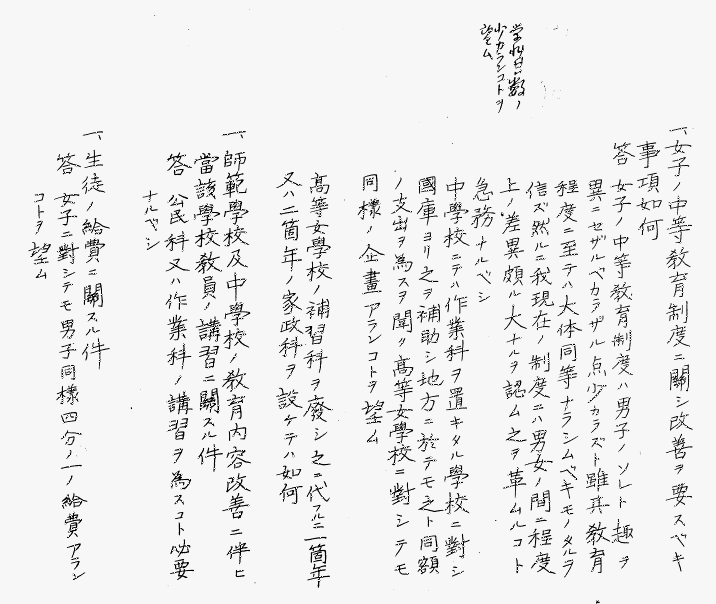 一、女子ノ中等教育制度ニ關シ改善ヲ要スベキ
事項如何
答 女子ノ中等教育制度ハ男子ノソレト趣ヲ
異ニセザルベカラザル点少カラズト雖其教育
程度ニ至テハ大体同等ナラシムベキモノタルヲ
信ズ然ルニ我現在ノ制度ニハ男女ノ間ニ程度
上ノ差異頗ル大ナルヲ認ム之ヲ革ムルコト
急務ナルベシ
学 日数ノ
少カランコトヲ
望ム
中學校ニテハ作業科ヲ置キタル學校ニ對シ
國庫ヨリ之ヲ補助シ地方ニ於テモ之ト同額
ノ支出ヲ為スヲ聞ク高等女學校ニ對シテモ
同様ノ企畫アランコトヲ望ム
高等女學校ノ補習科ヲ廢シ之ニ代フルニ一箇年
又ハ二箇年ノ家政科ヲ設ケテハ如何
一、師範學校及中學校ノ教育内容改善ニ伴ヒ
當該學校教員ノ講習ニ關スル件
答 公民科又ハ作業科ノ講習ヲ為スコト必要
ナルベシ
一、生徒ノ給費ニ關スル件
答 女子ニ對シテモ男子同様四分ノ一ノ給費アラン
コトヲ望ム